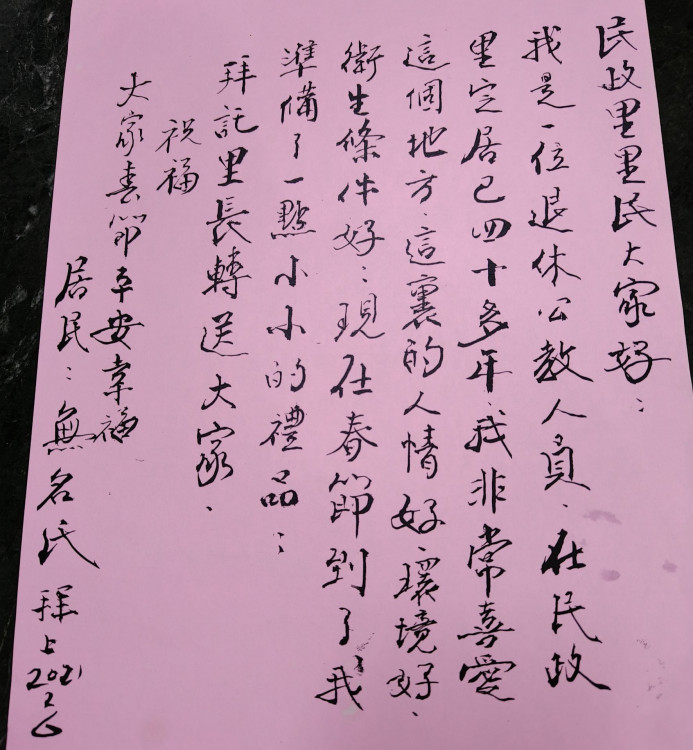 民政里里民大家好：
我是一位退休公教人員、在民政
里定居已四十多年、我非常喜愛
這個地方、這裏的人情好、環境好、
衛生條件好：現在春節到了我
準備了一點小小的禮品：
拜託里長轉送大家、
祝福
大家春節平安幸福
居民：無名氏 拜上
2021
2
6